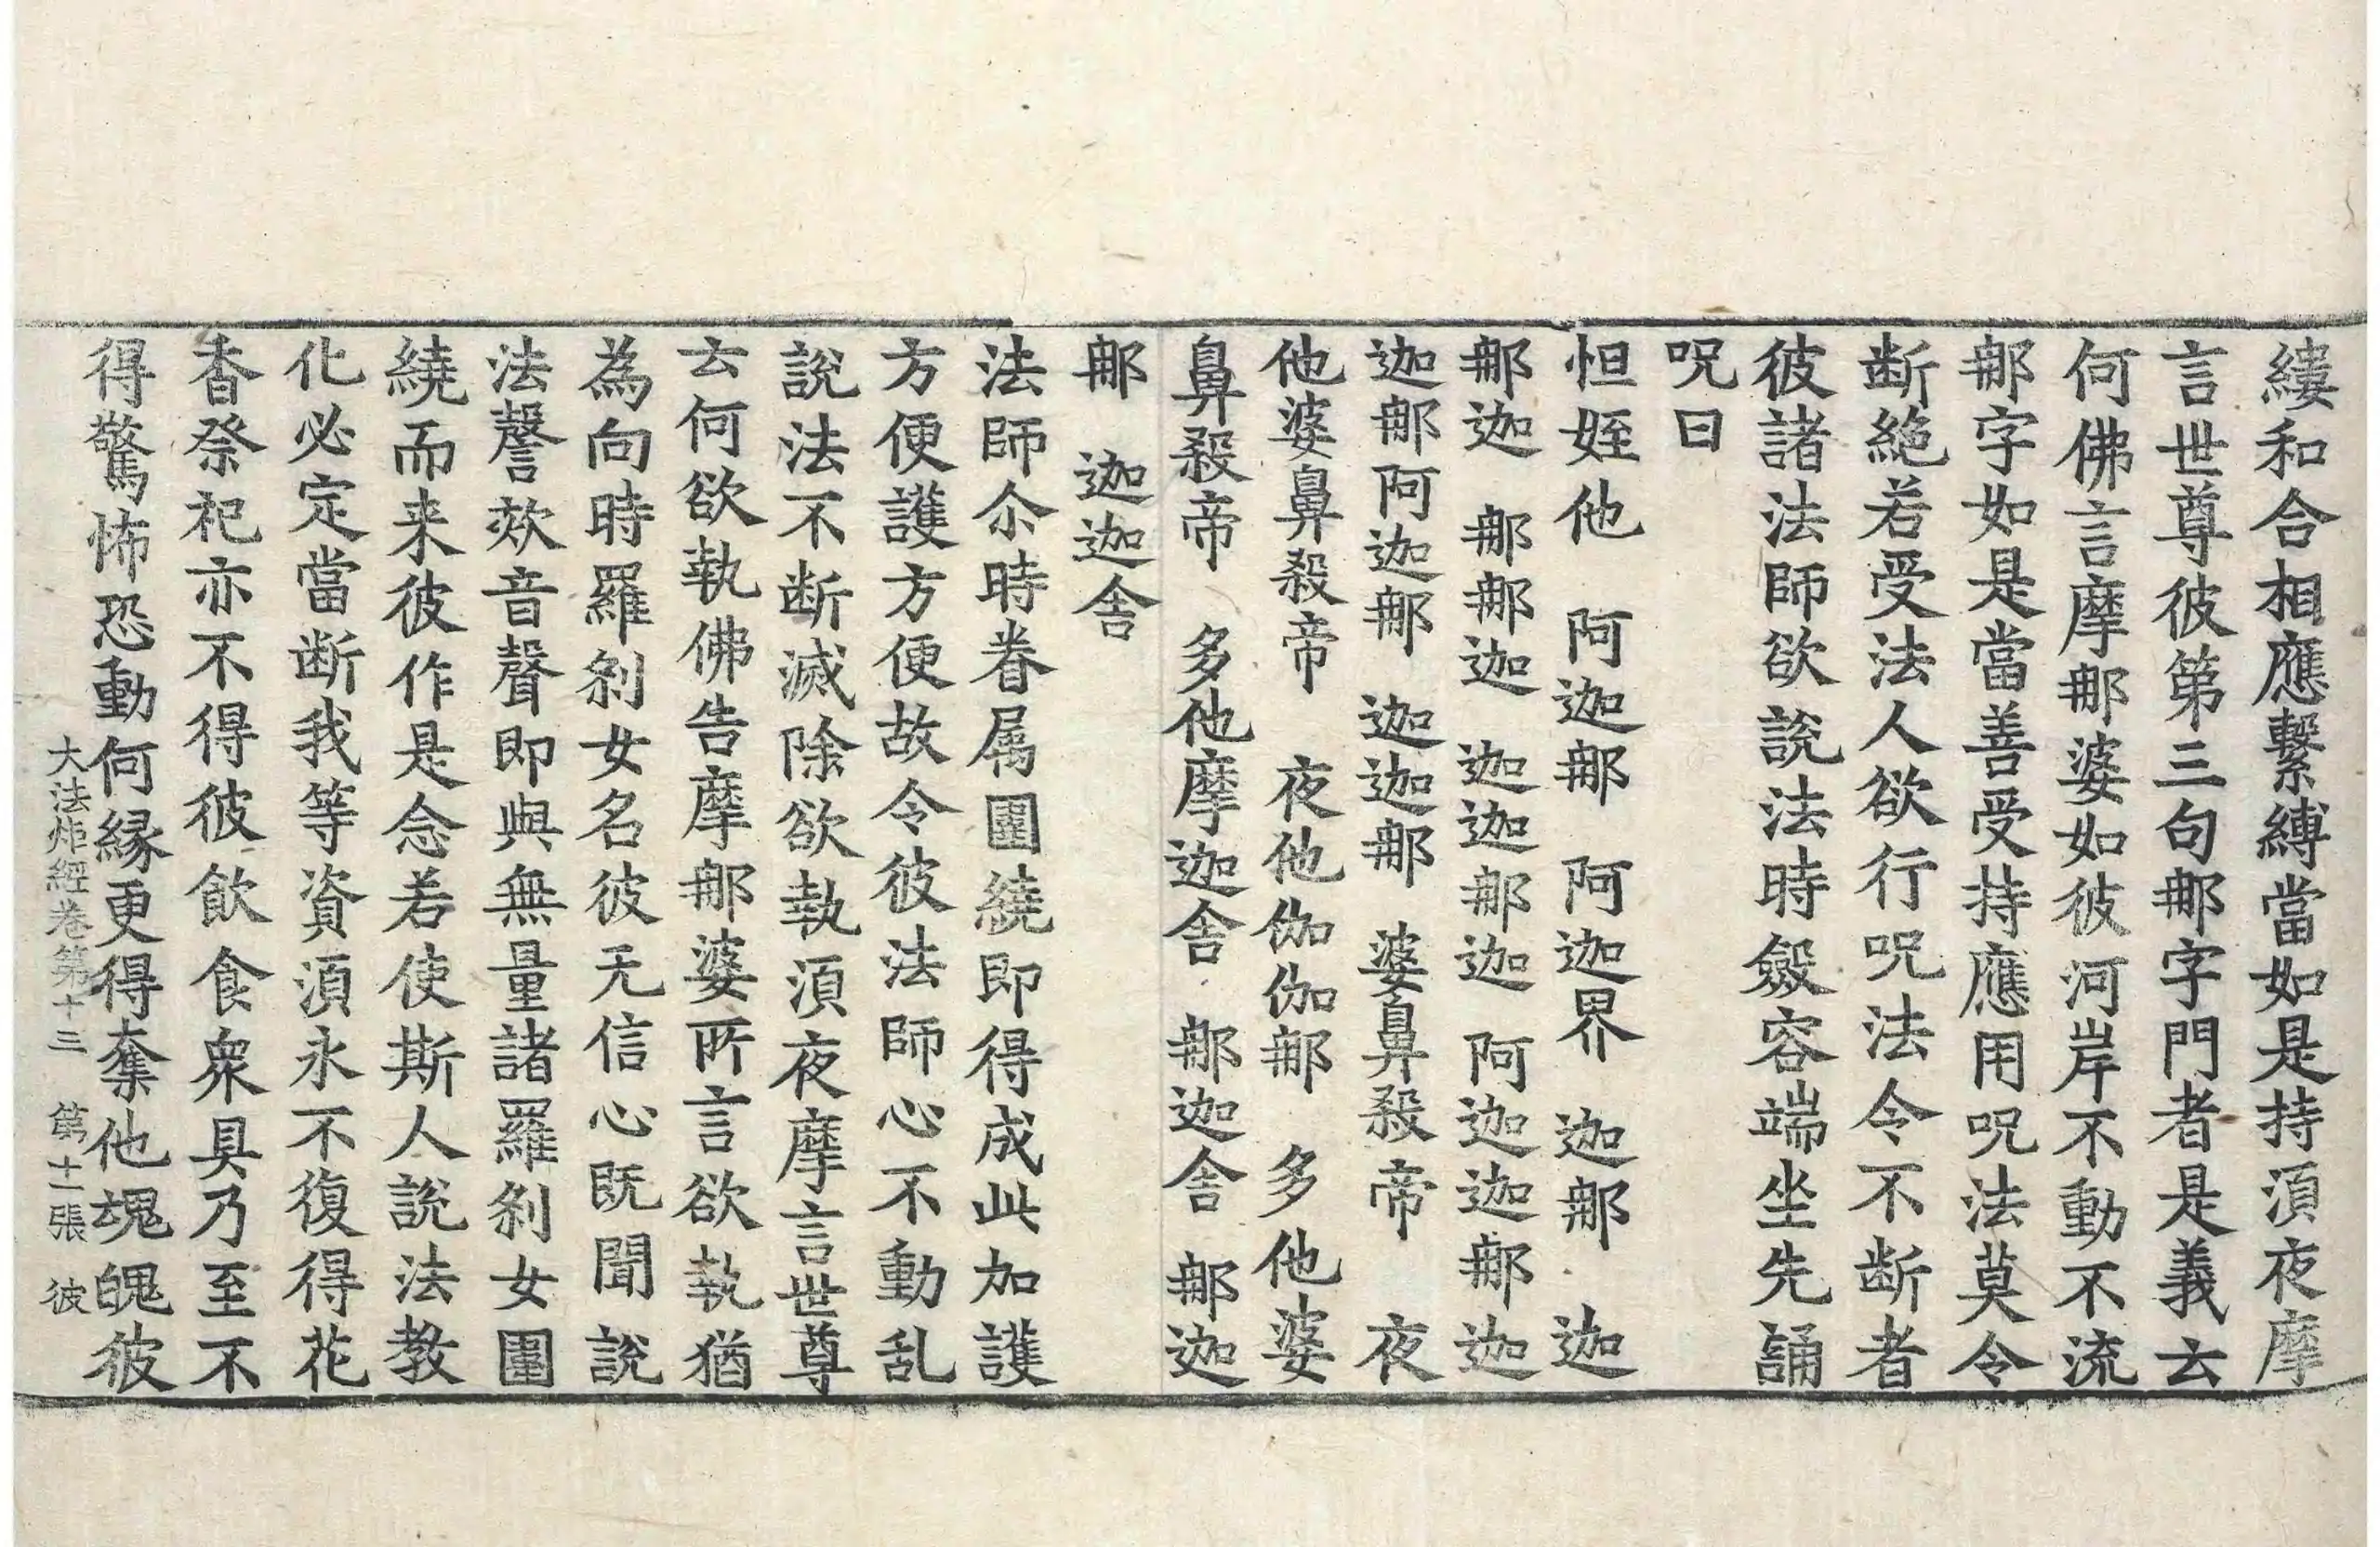 縷和合相應繫縛當如是持湏夜摩
言世尊彼第三句那字門者是義云
何佛言摩那婆如彼河岸不動不流
那字如是當善受持應用呪法莫令
断絶若受法人欲行呪法令不断者
彼諸法師欲說法時斂容端坐先誦
呪曰
怛姪他　阿迦那　阿迦界　迦那　迦
那迦　那那迦　迦迦那迦　阿迦迦那迦
迦那阿迦那　迦迦那　婆鼻殺帝　夜
他婆鼻殺帝　夜他伽伽那　多他婆
鼻殺帝　多他摩迦舍　那迦舍　那迦
那　迦迦舍
法師尒時眷属圍繞即得成此加護
方便護方便故令彼法師心不動乱
說法不断滅除欲執湏夜摩言世尊
云何欲執佛告摩那婆所言欲執猶
為向時羅刹女名彼无信心既聞說
法謦欬音聲即與無量諸羅刹女圍
繞而来彼作是念若使斯人說法教
化必定當断我等資湏永不復得花
香祭祀亦不得彼飲食衆具乃至不
得驚怖恐動何縁更得奪他魂魄彼
大法炬經卷第十三　第十一張　彼